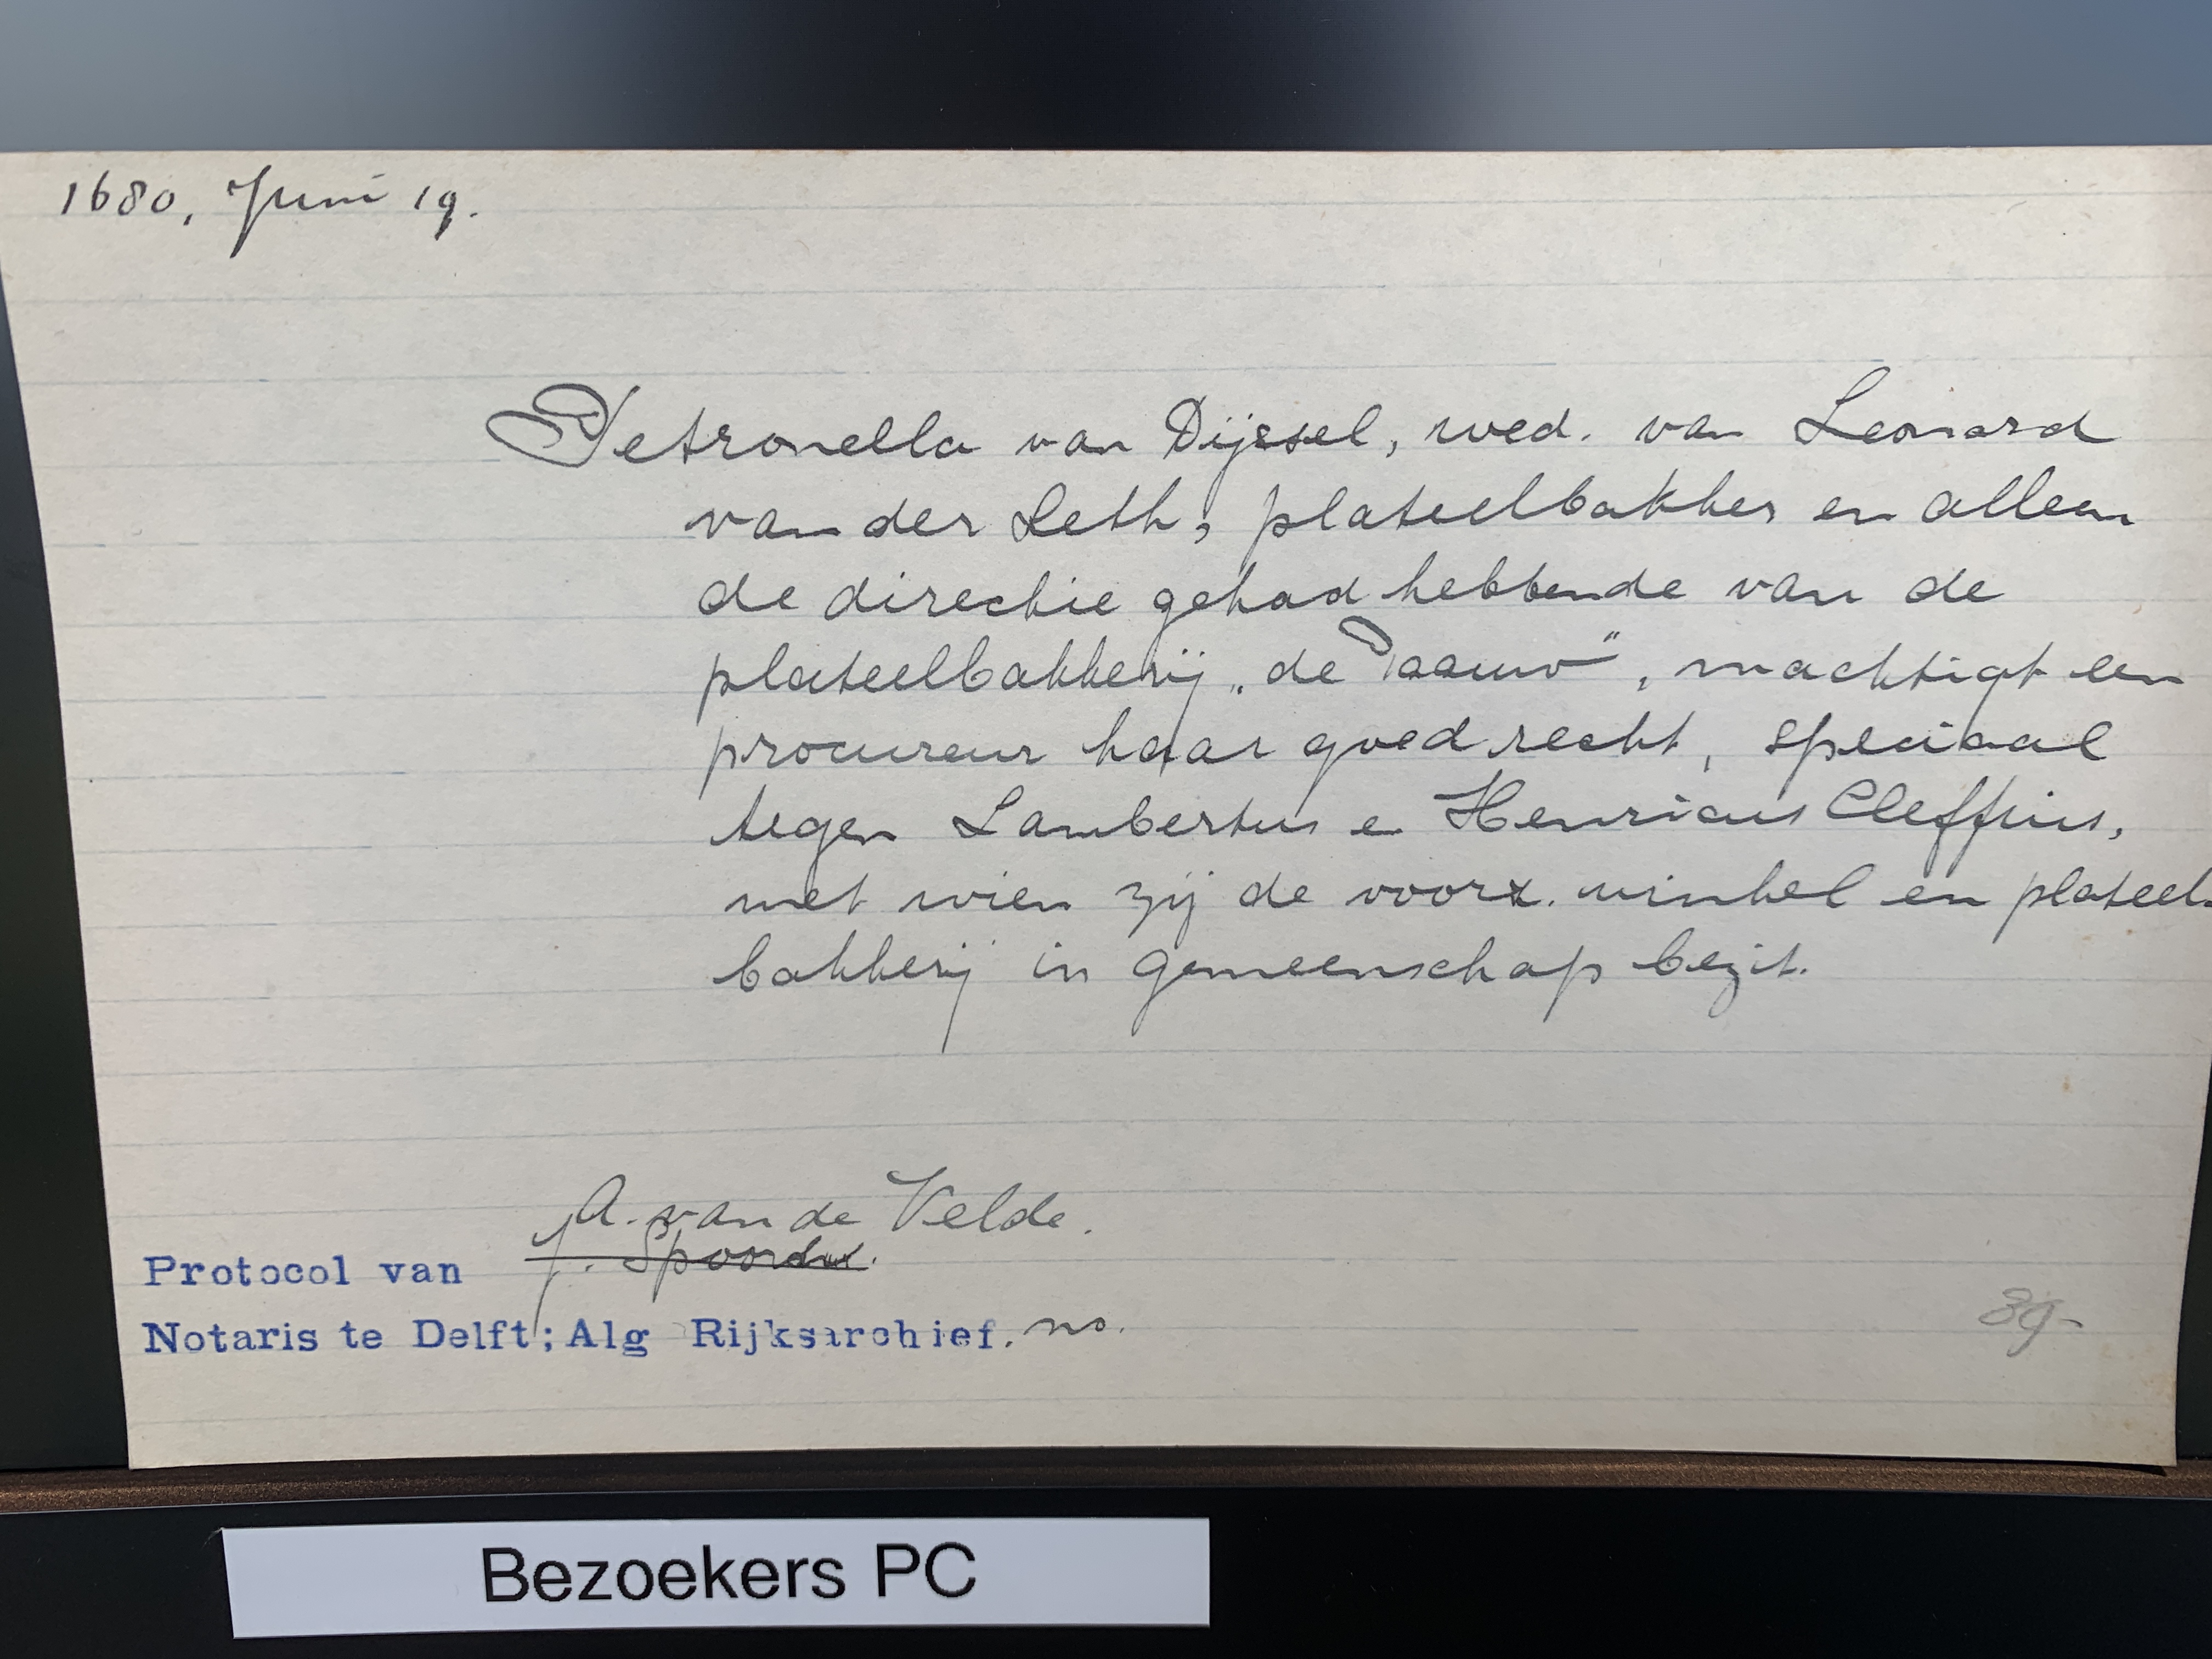 1680, Juni 19.
Petronella van Dijssel, wed. van Leonard
van der Leth, plateelbakker en alleen
de directie gehad hebbende van de
plateelbakkerij „de Paauw", machtigt een
procureur haar goed recht, speciaal
tegen Lambertus e Henricus Cleffius,
met wien zij de voorz. winkel en plateel-
bakkerij in gemeenschap bezit.
A. van de Velde.
Protocol van J. Spoordw.
Notaris te Delft; Alg Rijksarchief. no.
89-
Bezoekers PC